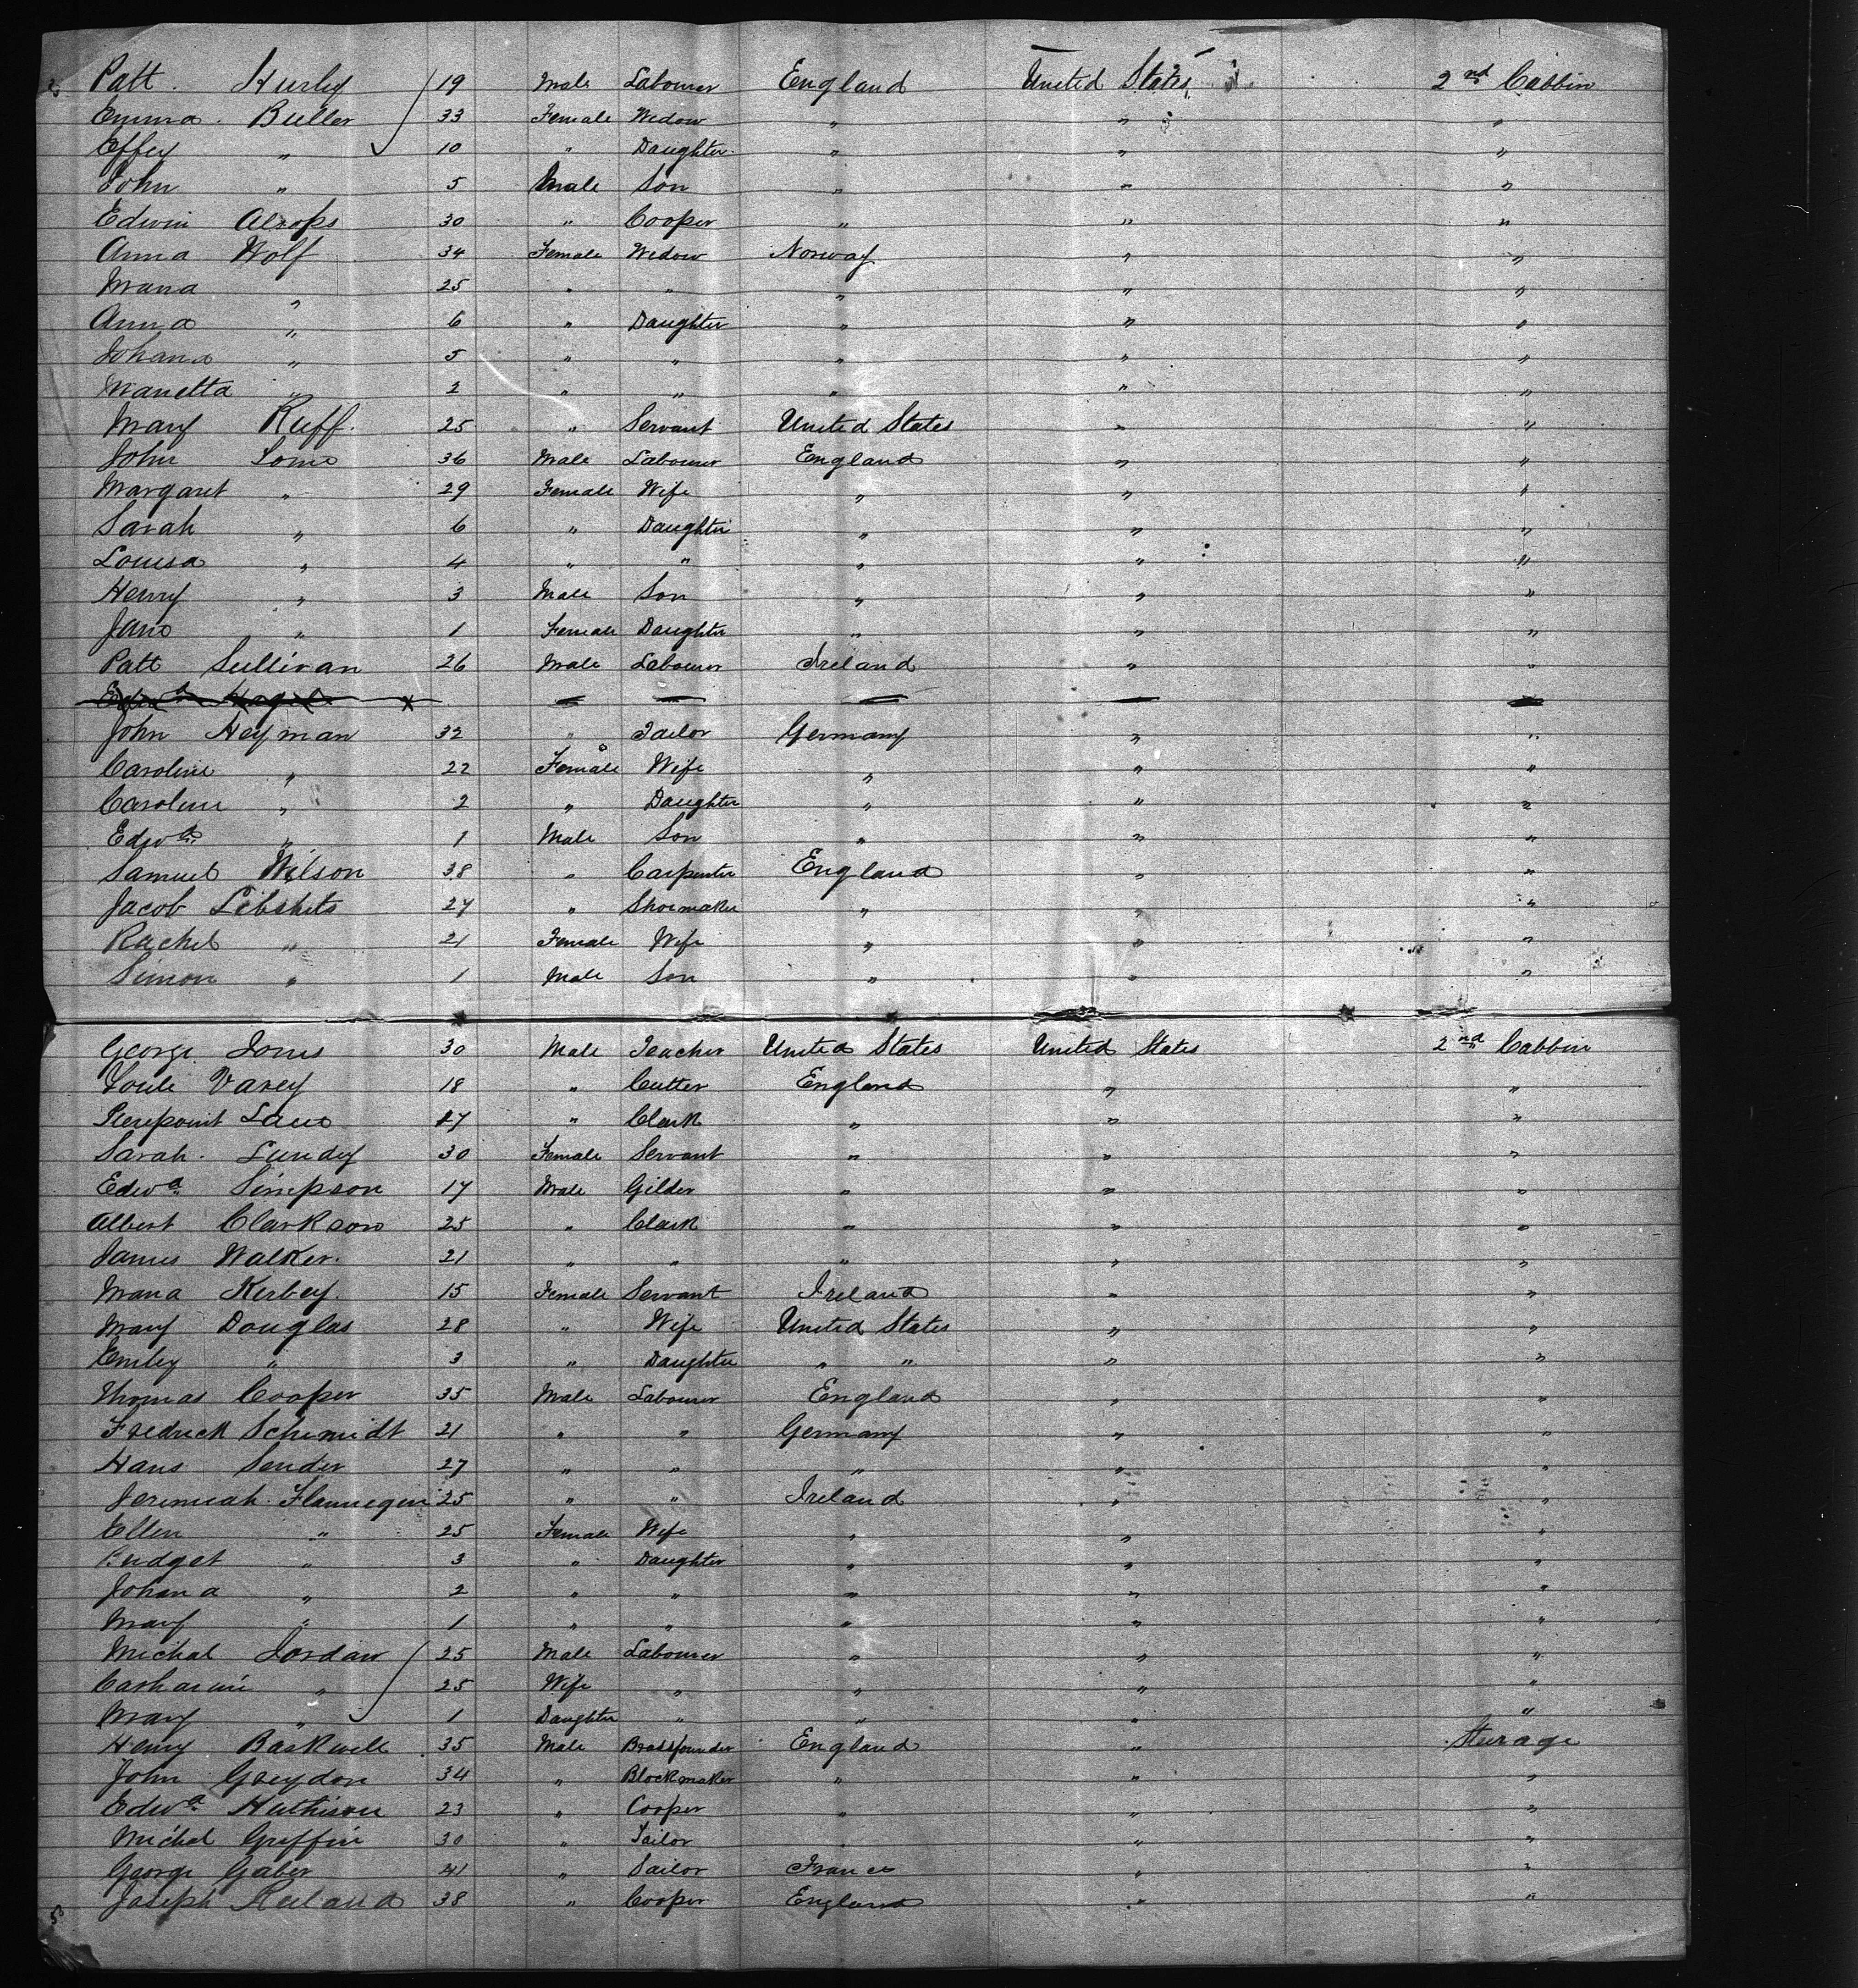 Patt. Hurley 19 Male Labourer England United States 2nd Cabbin
Emma. Buller 33 Female Wedow " " "
Effey " 10 " Daughter " " "
John " 5 Male Son " " "
Edwin Alsops 30 " Cooper " " "
Anna Wolf 34 Female Wedow Norway " "
Maria " 25 " " " " "
Anna " 6 " Daughter " " "
Johana " 5 " " " " "
Marietta " 2 " " " " "
Mary Ruff. 25 " Servant United States " "
John 36 Male Labourer England " "
Margaret " 29 Female Wife " " "
Sarah " 6 " Daughter " " "
Louisa " 4 " " " " "
Henry " 3 Male Son " " "
Jane " 1 Female Daughter " " "
Patt Sullivan 26 Male Labourer Ireland " "
John Heyman 32 " Tailor Germany " "
Caroline " 22 Female Wife " " "
Caroline " 2 " Daughter " " "
Edwd " 1 Male Son " " "
Samuel Wilson 38 " Carpenter England " "
Jacob Libshits 27 " Shoemaker " " "
Rachel " 21 Female Wife " " "
Simon " 1 Male Son " " "
George Jones 30 Male Teacher United States United States 2nd Cabbin
Varey 18 " Cutter England " "
Pierepoint 17 " Clark " " "
Sarah. Lundey 30 Female Servant " " "
Edwd Simpson 17 Male Gilder " " "
Albert Clarkson 25 " Clark " " "
James Walker. 21 " " " " "
Maria Kerbey. 15 Female Servant Ireland " "
Mary Douglas 28 " Wife United States " "
Emiley " 3 " Daughter " " " "
Thomas Cooper 35 Male Labourer England " "
Fredrick Schemidt 21 " " Germany " "
Hans Sender 27 " " " " "
Jeremiah. Flannegen 25 " " Ireland " "
Ellen " 25 Female Wife " " "
Bridget " 3 " Daughter " " "
Johana " 2 " " " " "
Mary " 1 " " " " "
Michal Jordan 25 Male Labourer " " "
Catharine " 25 Wife " " " "
Mary " 1 Daughter " " " "
Henry Baskwell 35 Male Brassfounder England " Sturage
John Greydon 34 " Blockmaker " " "
Edwd Huthison 23 " Cooper " " "
Michel Griffin 30 " Tailor " " "
George Gaber 41 " Sailor France " "
Joseph Reiland 38 " Cooper England " "